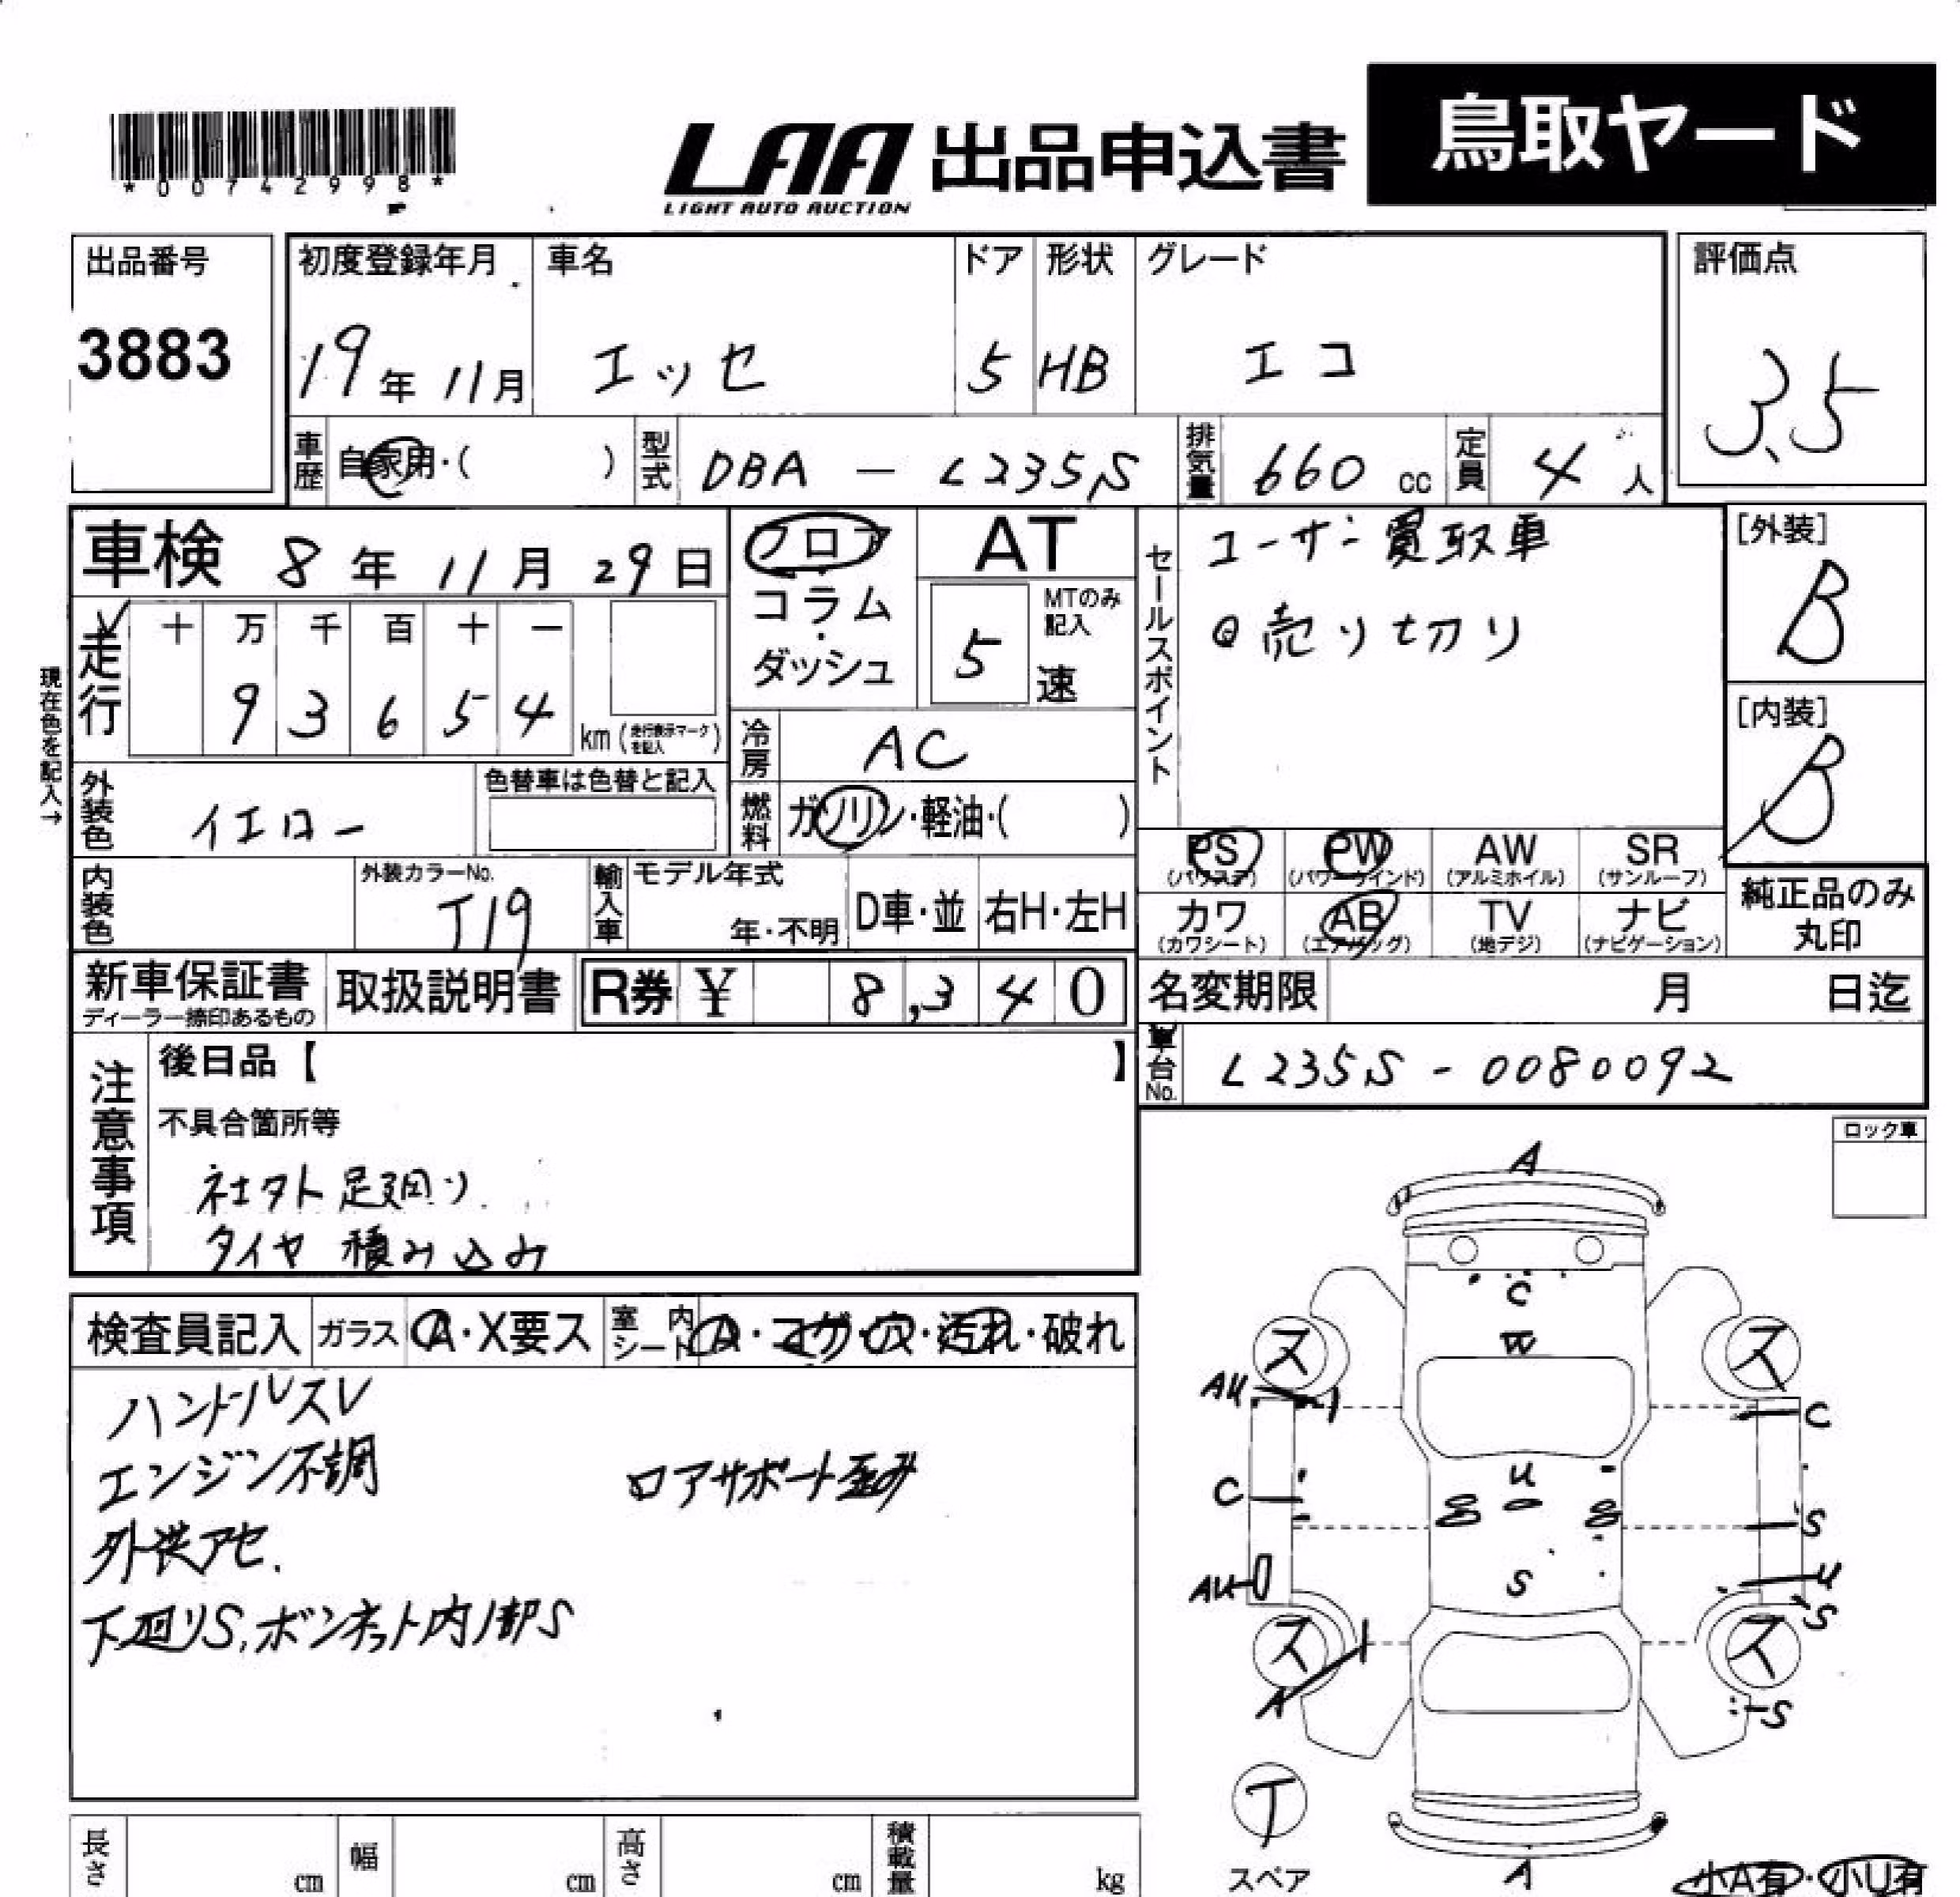 *00742998*
LAA 出品申込書 鳥取ヤード
LIGHT AUTO AUCTION
出品番号 初度登録年月 車名 ドア 形状 グレード 評価点
3883 19年11月 エッセ 5 HB エコ 3.5
車歴 自家用・( ) 型式 DBA - L235S 排気量 660 cc 定員 4 人
車検 8年11月29日 フロア・コラム・ダッシュ AT 5 MTのみ記入 速
セールスポイント ユーザー買取車
◎売り切り
[外装] B
[内装] B
現在色を記入→
走行 十 万 千 百 十 一
9 3 6 5 4 km (走行表示マークを記入)
冷房 AC
外装色 イエロー 色替車は色替と記入
燃料 ガソリン・軽油・( )
PS (パワステ) PW (パワーウインド) AW (アルミホイル) SR (サンルーフ)
カワ (カワシート) AB (エアバッグ) TV (地デジ) ナビ (ナビゲーション) 純正品のみ丸印
内装色 外装カラーNo. T19 輸入車 モデル年式 年・不明 D車・並 右H・左H
新車保証書 ディーラー捺印あるもの 取扱説明書 R券 ¥ 8,340
名変期限 月 日迄
車台No. L235S - 0080092
注意事項 後日品【 】
不具合箇所等
社外足廻り
タイヤ積み込み
ロック車
検査員記入 ガラス A・X要ス 室内シート A・コゲ・穴・汚れ・破れ
ハンドルスレ
エンジン不調 ロアサポート歪み
外装アセ.
下廻りS,ボンネット内部S
A
C
W
ス ス
AU C
U
C S
S
AU U
S
ス ス
A S
T
スペア A 小A有・小U有
長さ cm 幅 cm 高さ cm 積載量 kg